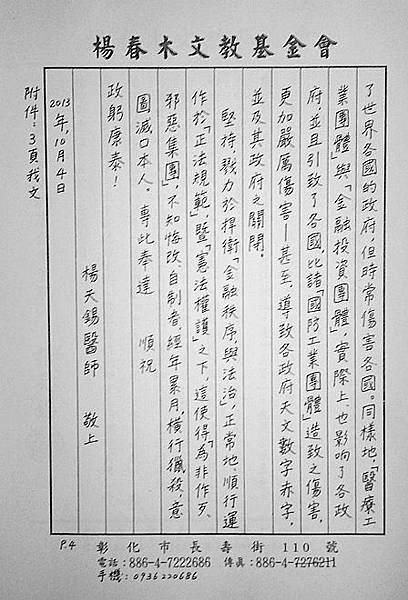 楊春木文教基金會
了世界各國的政府,但時常傷害各國。同樣地,「醫療工
業團體」與「金融投資團體」,實際上也影响了各政
府,並且引致了各國比諸「國防工業團體」造致之傷害,
更加嚴厲傷害—甚至,導致各政府天文數字赤字,
並及其政府之關閉。
堅持,戮力於捍衛「金融秩序,與法治」,正常地、順行運
作於「正法規範」,暨「憲法權護」之下,這使得「為非作歹、
邪惡集團」,不知悔改自制者,經年累月,橫行獵殺,意
圖滅口本人。專此奉達 順祝
政躬康泰!
楊天錫醫師 敬上
2013年,10月4日
附件:3頁我文
P.4 彰化市長壽街110號
電話:886-4-7222686 傳真:886-4-7276211
手機:0936220686